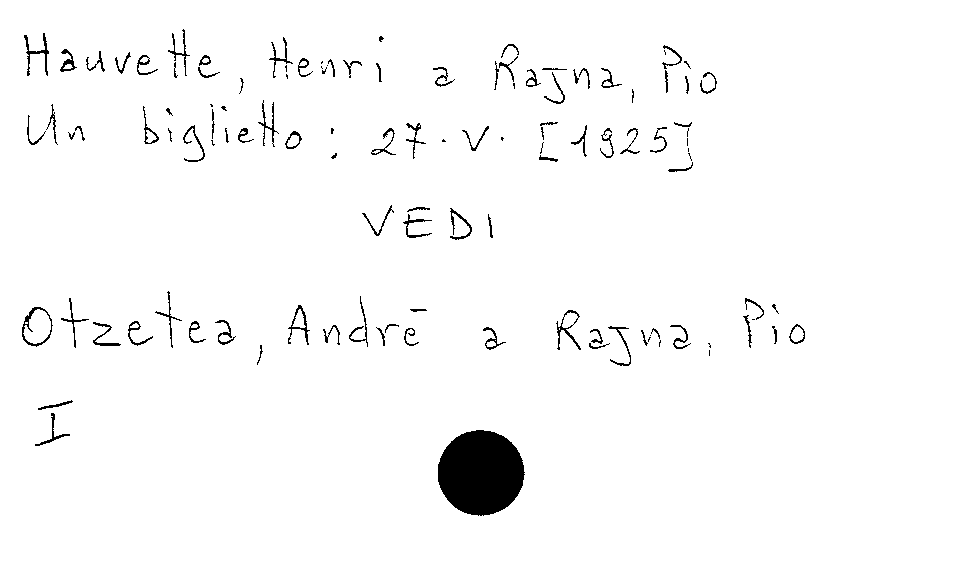 Hauvette, Henri a Rajna, Pio
Un biglietto: 27.V. [1925]
VEDI
Otzetea, André a Rajna, Pio
I